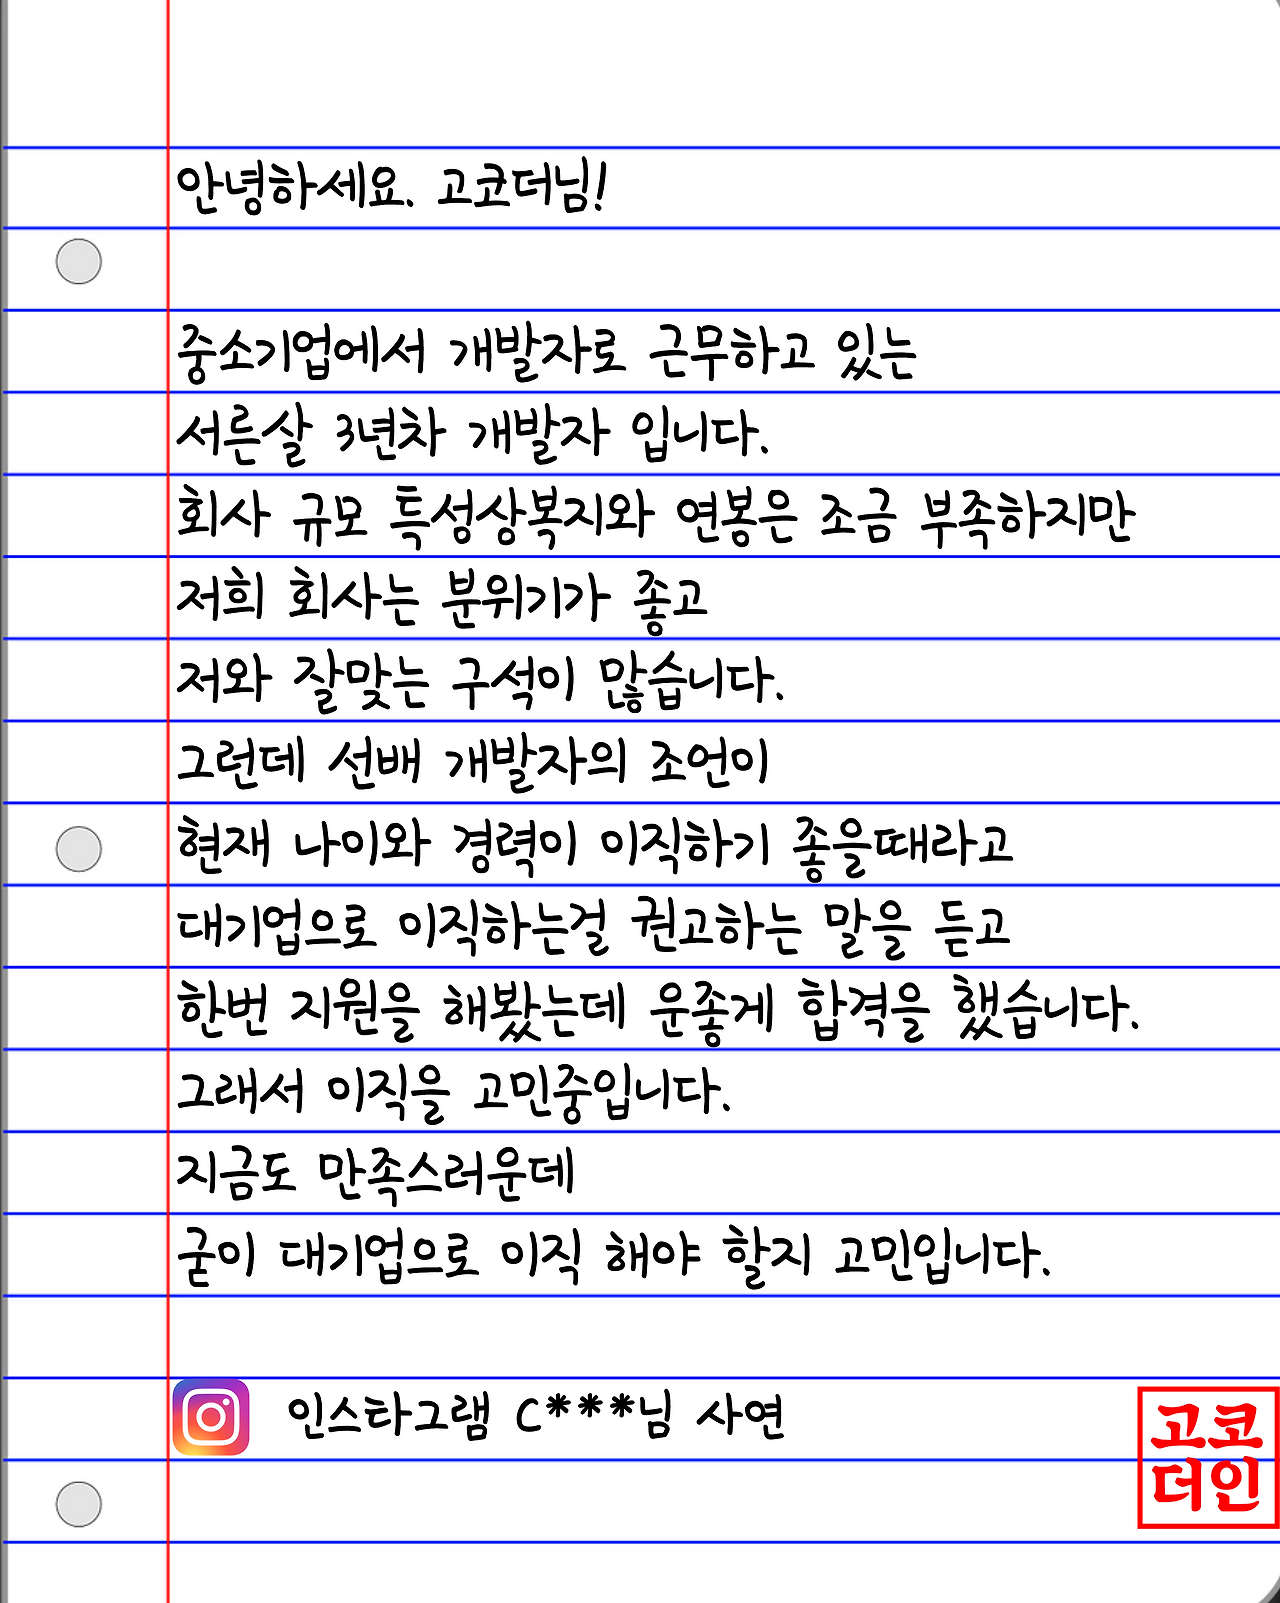 안녕하세요. 고코더님!
중소기업에서 개발자로 근무하고 있는
서른살 3년차 개발자 입니다.
회사 규모 특성상복지와 연봉은 조금 부족하지만
저희 회사는 분위기가 좋고
저와 잘맞는 구석이 많습니다.
그런데 선배 개발자의 조언이
현재 나이와 경력이 이직하기 좋을때라고
대기업으로 이직하는걸 권고하는 말을 듣고
한번 지원을 해봤는데 운좋게 합격을 했습니다.
그래서 이직을 고민중입니다.
지금도 만족스러운데
굳이 대기업으로 이직 해야 할지 고민입니다.
인스타그램 C***님 사연
고코
더인